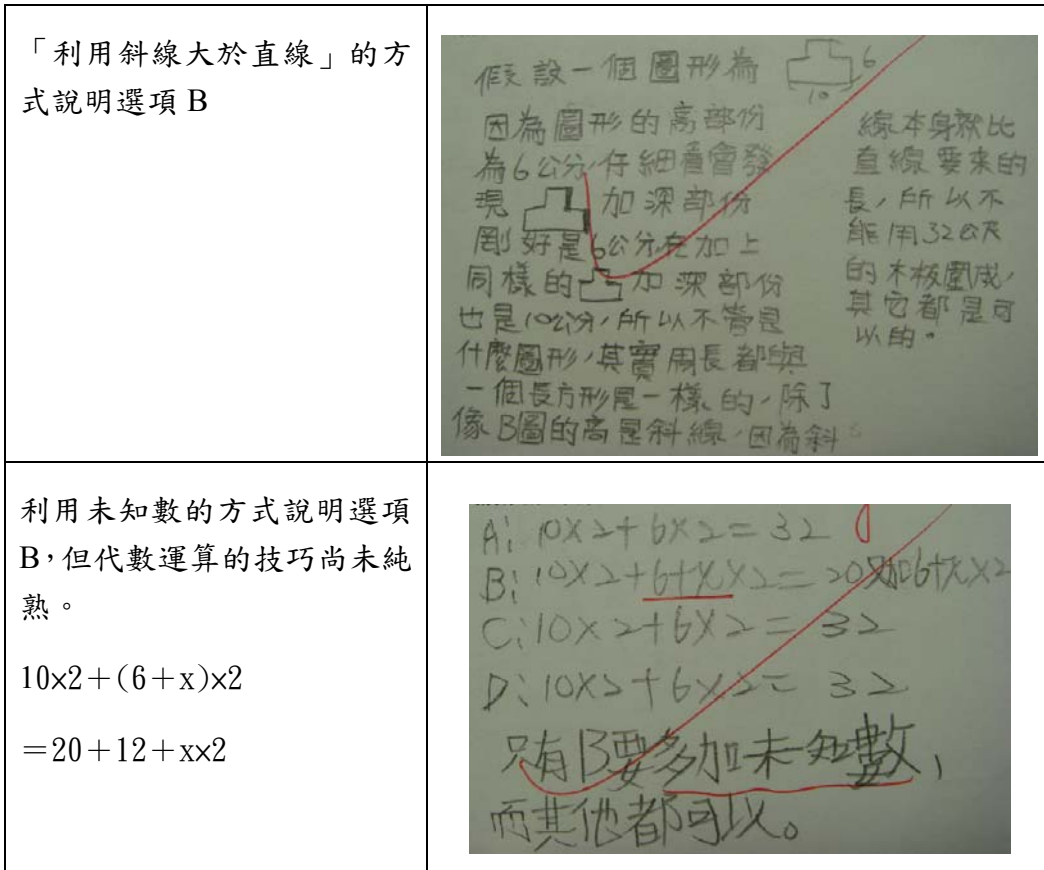 「利用斜線大於直線」的方
式說明選項 B
假設一個圖形為 6
10
因為圖形的高部份
為6公分,仔細看會發
現 加深部份
剛好是6公分在加上
同樣的 加深部份
也是10公分,所以不管是
什麼圖形,其實周長都與
一個長方形是一樣的,除了
像B圖的高是斜線,因為斜
線本身就比
直線要來的
長,所以不
能用32公尺
的木板圍成,
其它都是可
以的。
利用未知數的方式說明選項
B,但代數運算的技巧尚未純
熟。
10×2＋(6＋x)×2
＝20＋12＋x×2
A: 10×2+6×2=32
B: 10×2+6+x×2=20 6+x×2
C: 10×2+6×2=32
D: 10×2+6×2=32
只有B要多加未知數,
而其他都可以。